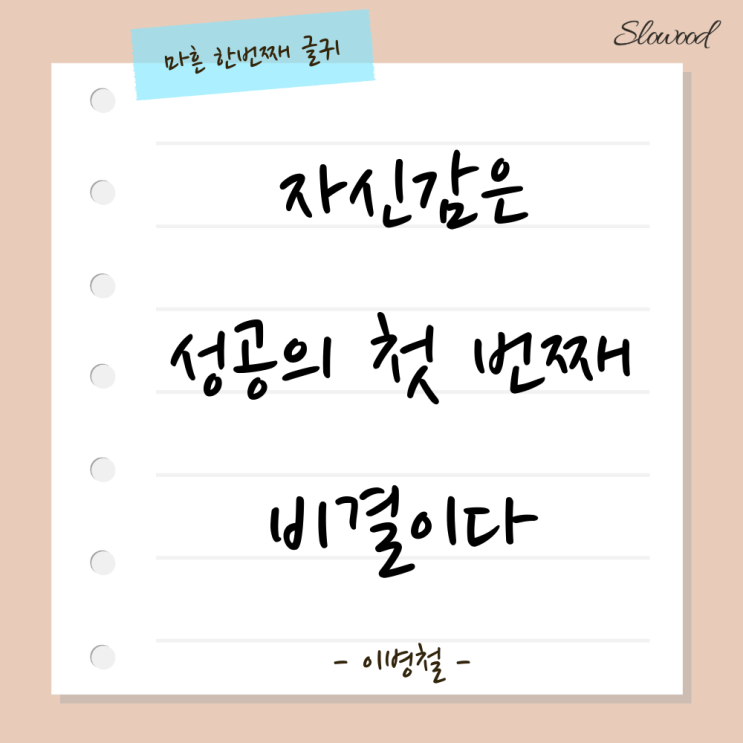 Slowood
마흔 한번째 글귀
자신감은
성공의 첫 번째
비결이다
- 이병철 -